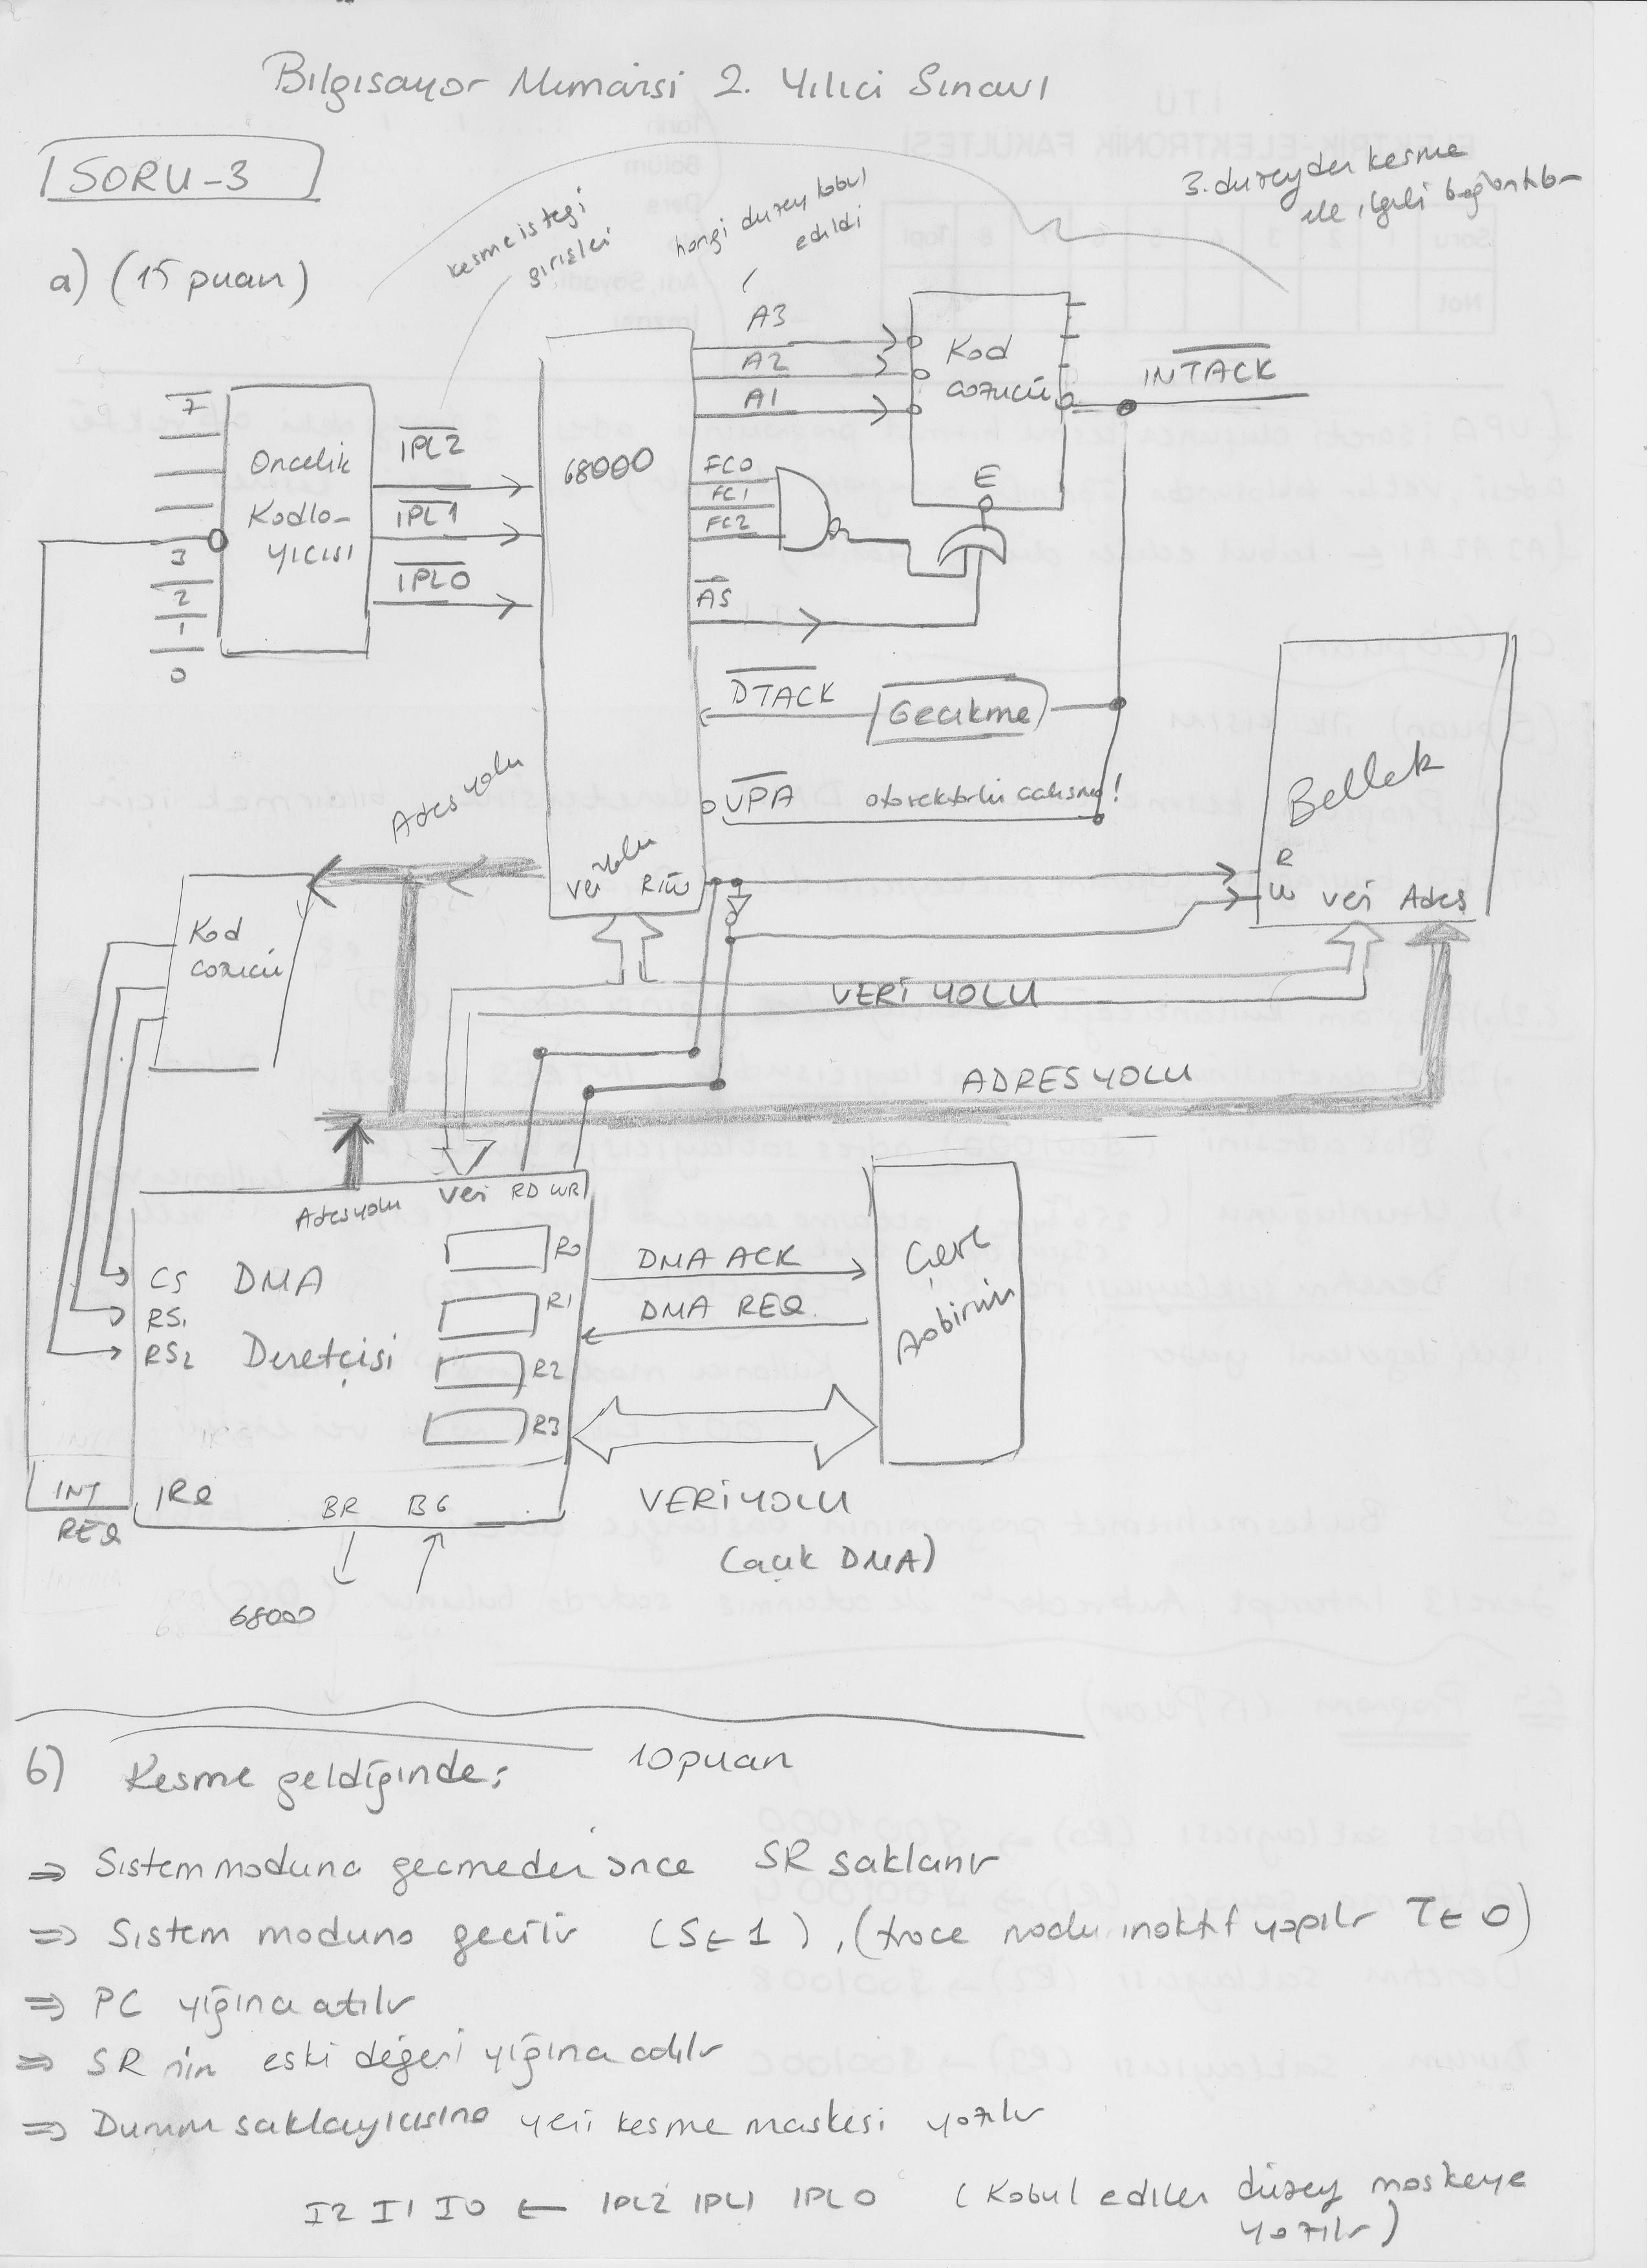 Bilgisayar Mimarisi 2. Yıliçi Sınavı
SORU-3
a) (15 puan)
kesme isteği
girişleri
hangi düzey kabul
edildi
3. düzeyden kesme
ile ilgili bağlantılar
A3
A2
A1
Kod
çözücü
E
INTACK
7
3
2
1
0
Öncelik
Kodla-
yıcısı
IPL2
IPL1
IPL0
68000
FC0
FC1
FC2
AS
DTACK
Gecikme
VPA otovektörlü çalışma!
Adres yolu
Veri yolu
R/W
Bellek
R
W
Veri Adres
Kod
çözücü
VERİ YOLU
ADRES YOLU
Adres yolu
Veri
RD WR
CS
RS1
RS2
DMA
Denetçisi
R0
R1
R2
R3
DMA ACK
DMA REQ.
Çevre
Arabirimi
INT
REQ
IRQ
BR
BG
68000
VERİ YOLU
(açık DMA)
b) Kesme geldiğinde: 10 puan
⇒ Sistem moduna geçmeden önce SR saklanır
⇒ Sistem moduna geçilir (S←1), (trace modu inaktif yapılır T←0)
⇒ PC yığına atılır
⇒ SR nin eski değeri yığına atılır
⇒ Durum saklayıcısına yeni kesme maskesi yazılır
I2 I1 I0 ← IPL2 IPL1 IPL0 (Kabul edilen düzey maskeye
yazılır)